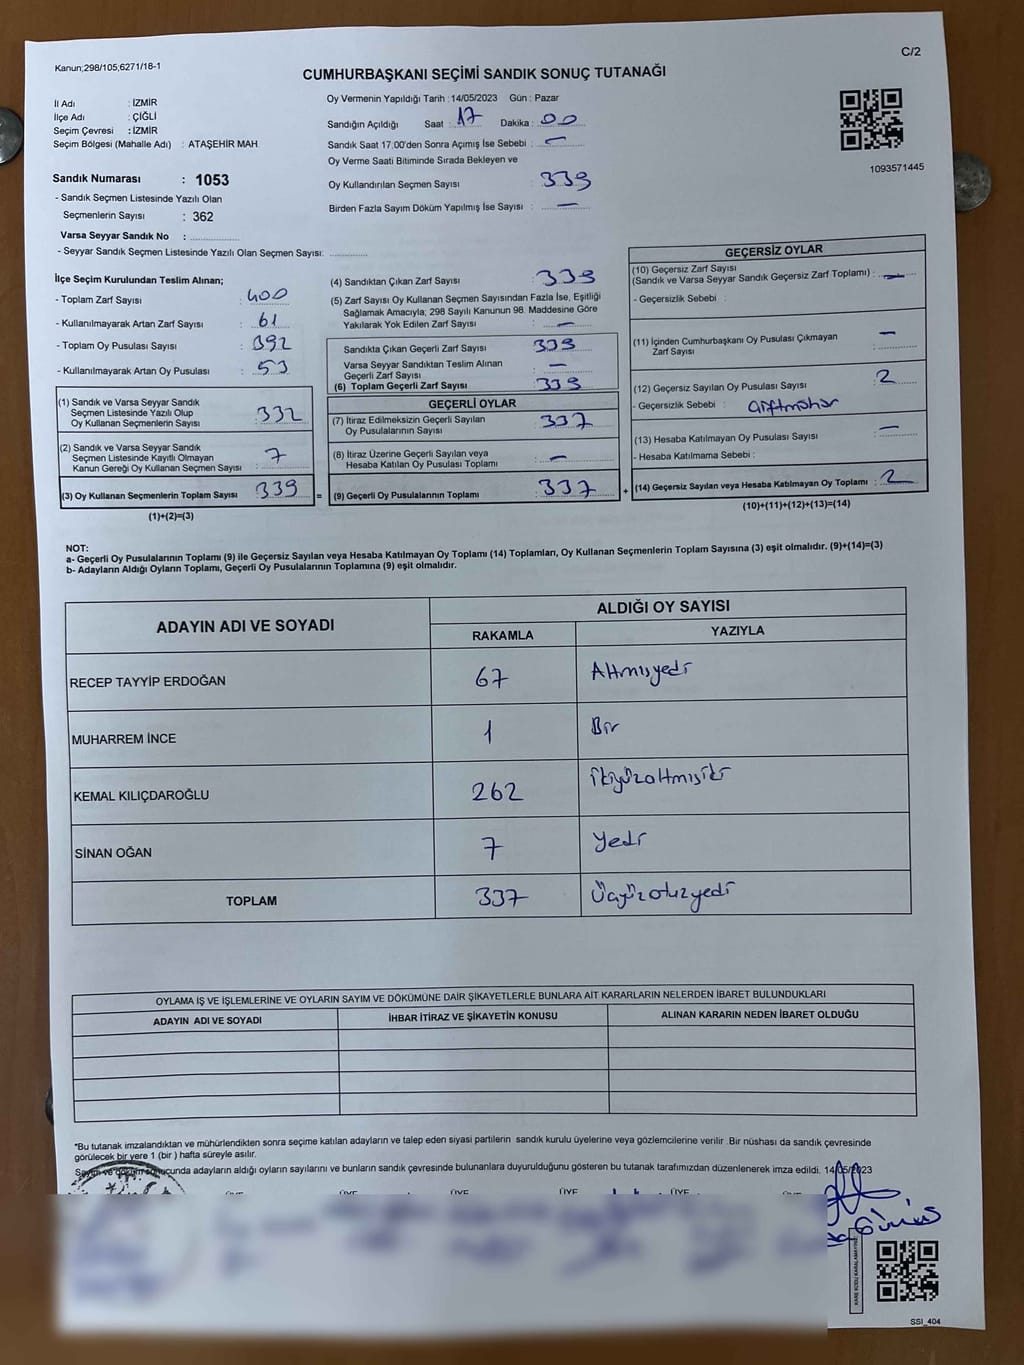 Kanun;298/105,6271/18-1
C/2
CUMHURBAŞKANI SEÇİMİ SANDIK SONUÇ TUTANAĞI
İl Adı : İZMİR
İlçe Adı : ÇİĞLİ
Seçim Çevresi : İZMİR
Seçim Bölgesi (Mahalle Adı) : ATAŞEHİR MAH
Sandık Numarası : 1053
- Sandık Seçmen Listesinde Yazılı Olan
Seçmenlerin Sayısı : 362
Varsa Seyyar Sandık No :
- Seyyar Sandık Seçmen Listesinde Yazılı Olan Seçmen Sayısı:
Oy Vermenin Yapıldığı Tarih : 14/05/2023 Gün : Pazar
Sandığın Açıldığı Saat : 17 Dakika : 00
Sandık Saat 17.00'den Sonra Açımış İse Sebebi : —
Oy Verme Saati Bitiminde Sırada Bekleyen ve
Oy Kullandırılan Seçmen Sayısı : 339
Birden Fazla Sayım Döküm Yapılmış İse Sayısı : —
1093571445
İlçe Seçim Kurulundan Teslim Alınan;
- Toplam Zarf Sayısı : 400
- Kullanılmayarak Artan Zarf Sayısı : 61
- Toplam Oy Pusulası Sayısı : 392
- Kullanılmayarak Artan Oy Pusulası : 53
(1) Sandık ve Varsa Seyyar Sandık
Seçmen Listesinde Yazılı Olup
Oy Kullanan Seçmenlerin Sayısı : 332
(2) Sandık ve Varsa Seyyar Sandık
Seçmen Listesinde Kayıtlı Olmayan
Kanun Gereği Oy Kullanan Seçmen Sayısı : 7
(3) Oy Kullanan Seçmenlerin Toplam Sayısı : 339 =
(1)+(2)=(3)
(4) Sandıktan Çıkan Zarf Sayısı : 339
(5) Zarf Sayısı Oy Kullanan Seçmen Sayısından Fazla İse, Eşitliği
Sağlamak Amacıyla; 298 Sayılı Kanunun 98. Maddesine Göre
Yakılarak Yok Edilen Zarf Sayısı : —
Sandıkta Çıkan Geçerli Zarf Sayısı : 339
Varsa Seyyar Sandıktan Teslim Alınan
Geçerli Zarf Sayısı : —
(6) Toplam Geçerli Zarf Sayısı : 339
GEÇERLİ OYLAR
(7) İtiraz Edilmeksizin Geçerli Sayılan
Oy Pusulalarının Sayısı : 337
(8) İtiraz Üzerine Geçerli Sayılan veya
Hesaba Katılan Oy Pusulası Toplamı : —
(9) Geçerli Oy Pusulalarının Toplamı : 337 +
GEÇERSİZ OYLAR
(10) Geçersiz Zarf Sayısı
(Sandık ve Varsa Seyyar Sandık Geçersiz Zarf Toplamı) : —
- Geçersizlik Sebebi :
(11) İçinden Cumhurbaşkanı Oy Pusulası Çıkmayan
Zarf Sayısı : —
(12) Geçersiz Sayılan Oy Pusulası Sayısı : 2
- Geçersizlik Sebebi : çiftmühür
(13) Hesaba Katılmayan Oy Pusulası Sayısı : —
- Hesaba Katılmama Sebebi :
(14) Geçersiz Sayılan veya Hesaba Katılmayan Oy Toplamı : 2
(10)+(11)+(12)+(13)=(14)
NOT:
a- Geçerli Oy Pusulalarının Toplamı (9) ile Geçersiz Sayılan veya Hesaba Katılmayan Oy Toplamı (14) Toplamları, Oy Kullanan Seçmenlerin Toplam Sayısına (3) eşit olmalıdır. (9)+(14)=(3)
b- Adayların Aldığı Oyların Toplamı, Geçerli Oy Pusulalarının Toplamına (9) eşit olmalıdır.
ADAYIN ADI VE SOYADI ALDIĞI OY SAYISI
RAKAMLA YAZIYLA
RECEP TAYYİP ERDOĞAN 67 Altmışyedi
MUHARREM İNCE 1 Bir
KEMAL KILIÇDAROĞLU 262 ikiyüzaltmışiki
SİNAN OĞAN 7 Yedi
TOPLAM 337 Üçyüzotuzyedi
OYLAMA İŞ VE İŞLEMLERİNE VE OYLARIN SAYIM VE DÖKÜMÜNE DAİR ŞİKAYETLERLE BUNLARA AİT KARARLARIN NELERDEN İBARET BULUNDUKLARI
ADAYIN ADI VE SOYADI İHBAR İTİRAZ VE ŞİKAYETİN KONUSU ALINAN KARARIN NEDEN İBARET OLDUĞU
*Bu tutanak imzalandıktan ve mühürlendikten sonra seçime katılan adayların ve talep eden siyasi partilerin sandık kurulu üyelerine veya gözlemcilerine verilir .Bir nüshası da sandık çevresinde
görülecek bir yere 1 (bir ) hafta süreyle asılır.
Sayım ve döküm sonucunda adayların aldığı oyların sayılarını ve bunların sandık çevresinde bulunanlara duyurulduğunu gösteren bu tutanak tarafımızdan düzenlenerek imza edildi. 14/05/2023
ÜYE ÜYE ÜYE ÜYE ÜYE ÜYE
SSI_404